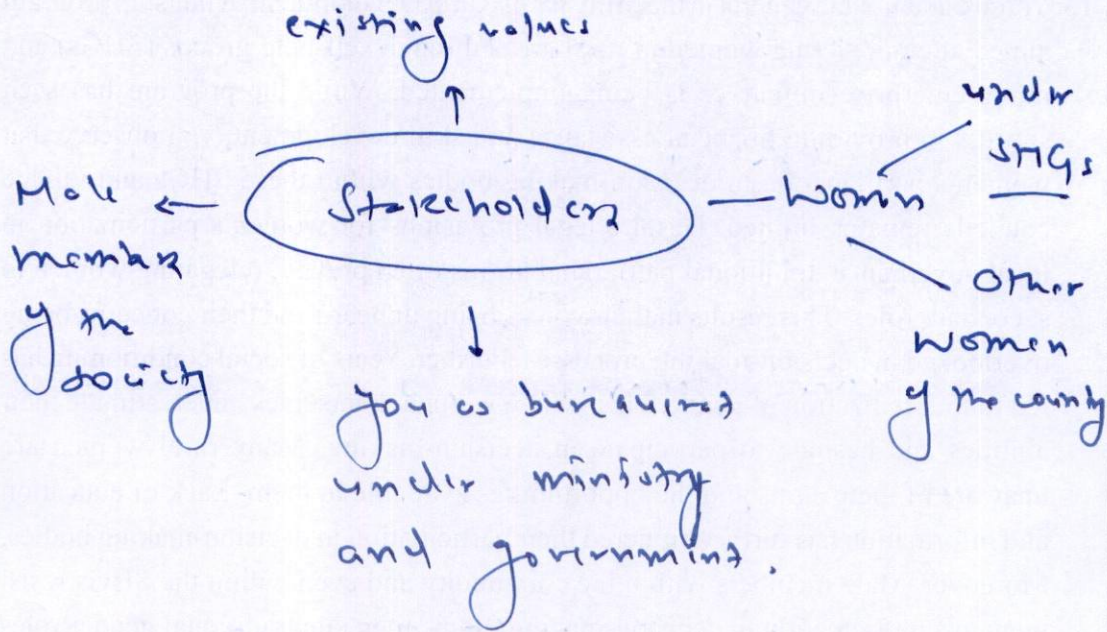 existing values
Stakeholders
Male
members
of the
society
Women
under
SHGs
Other
women
of the county
you as bureaucrat
under ministry
and government.